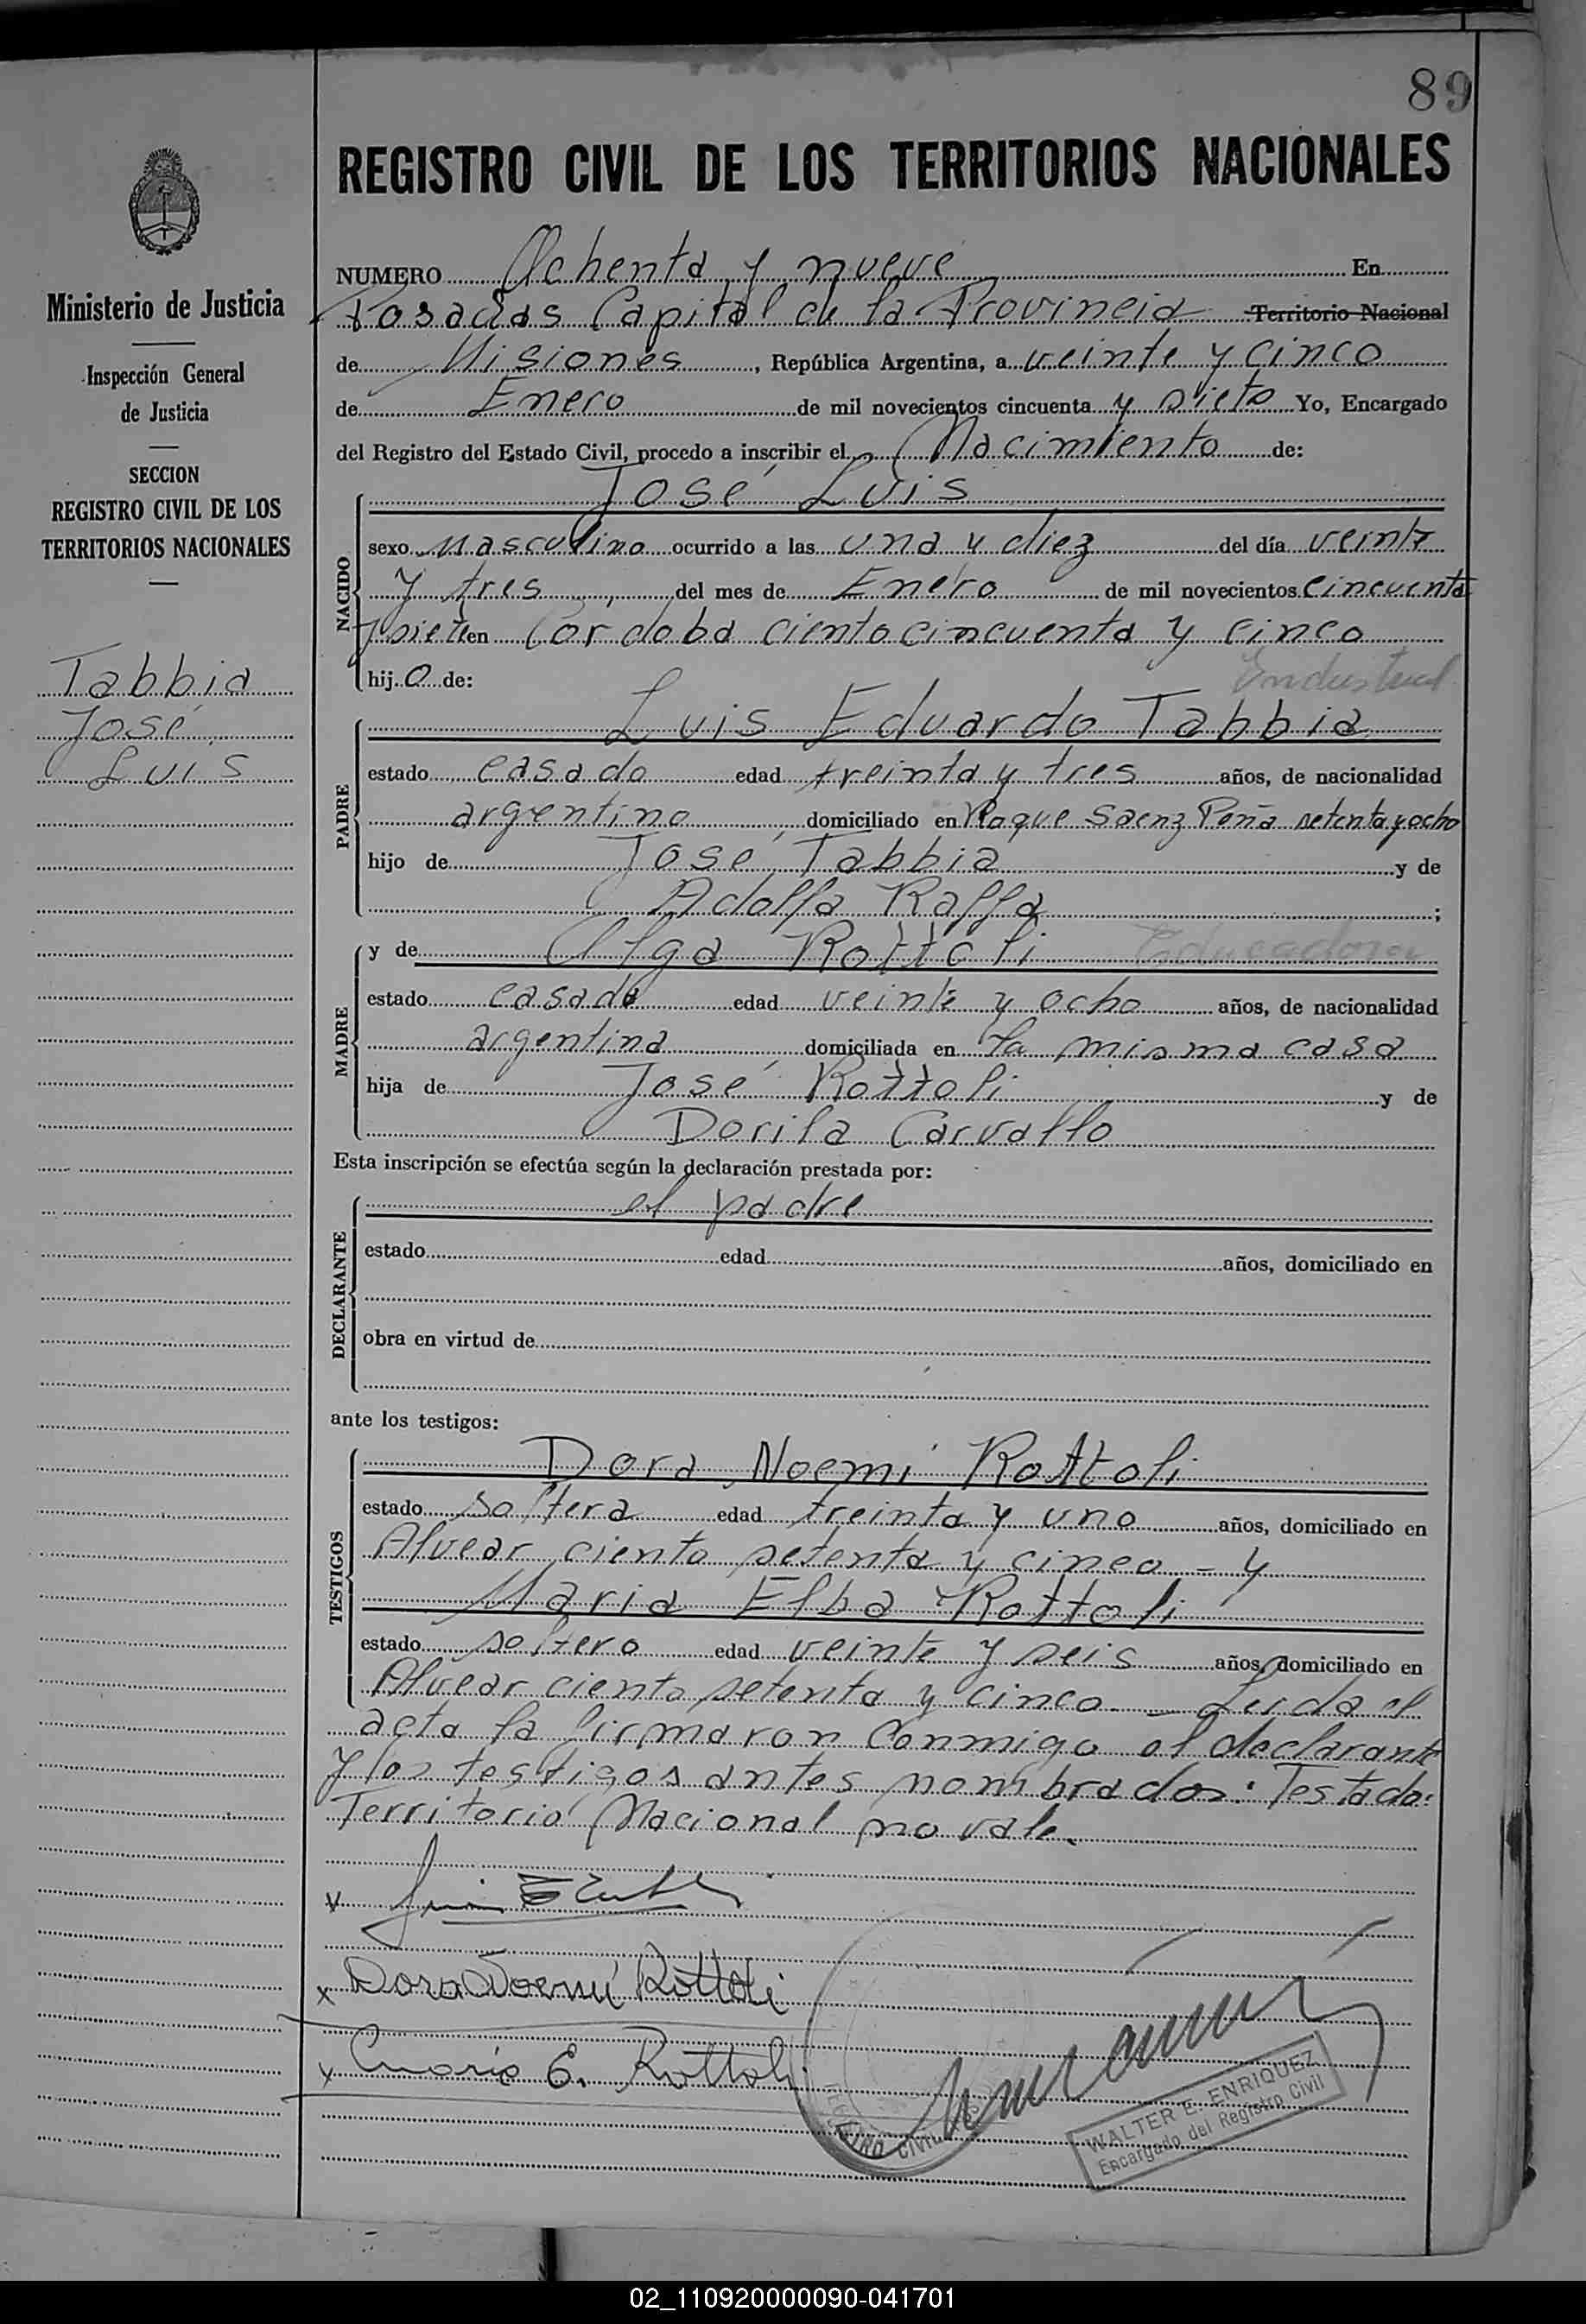 89
REGISTRO CIVIL DE LOS TERRITORIOS NACIONALES
Ministerio de Justicia
Inspección General
de Justicia
SECCION
REGISTRO CIVIL DE LOS
TERRITORIOS NACIONALES
Tabbia
José
Luis
NUMERO Ochenta y nueve En
Posadas Capital de la Provincia Territorio Nacional
de Misiones, República Argentina, a veinte y cinco
de Enero de mil novecientos cincuenta y siete Yo, Encargado
del Registro del Estado Civil, procedo a inscribir el Nacimiento de:
José Luis
NACIDO
sexo Masculino ocurrido a las una y diez del día veinte
y tres, del mes de Enero de mil novecientos cincuenta
y siete en Córdoba ciento cincuenta y cinco
hijo de: Industrial
Luis Eduardo Tabbia
PADRE
estado casado edad treinta y tres años, de nacionalidad
argentino, domiciliado en Roque Saenz Peña setenta y ocho
hijo de José Tabbia y de
Adolfa Raffa;
y de Olga Rottoli Educadora
MADRE
estado casada edad veinte y ocho años, de nacionalidad
argentina, domiciliada en la misma casa
hija de José Rottoli y de
Dorila Carvallo
Esta inscripción se efectúa según la declaración prestada por:
el padre
DECLARANTE
estado edad años, domiciliado en
obra en virtud de
ante los testigos:
Dora Noemi Rottoli
TESTIGOS
estado soltera edad treinta y uno años, domiciliado en
Alvear ciento setenta y cinco - y
Maria Elba Rottoli
estado soltero edad veinte y seis años, domiciliado en
Alvear ciento setenta y cinco. - Leida el
acta la firmaron conmigo el declarante
y los testigos antes nombrados: Testado:
Territorio Nacional no vale.
Dora Noemí Rottoli
Maria E. Rottoli
REGISTRO CIVIL
WALTER E. ENRIQUEZ
Encargado del Registro Civil
02_110920000090-041701